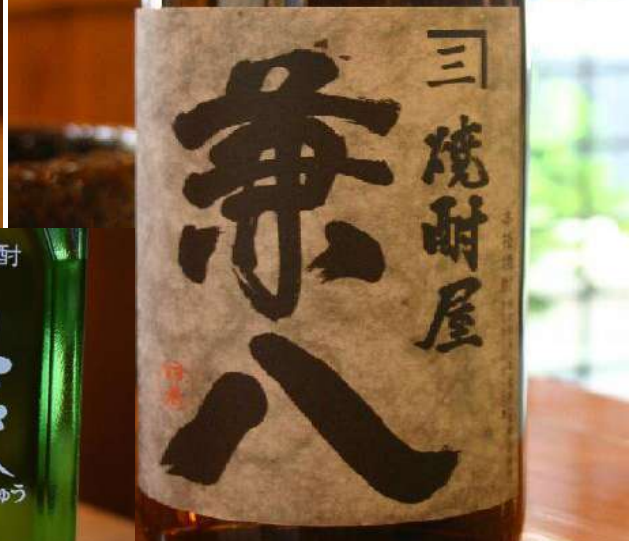 三
焼酎屋
兼八
酎
ゅう